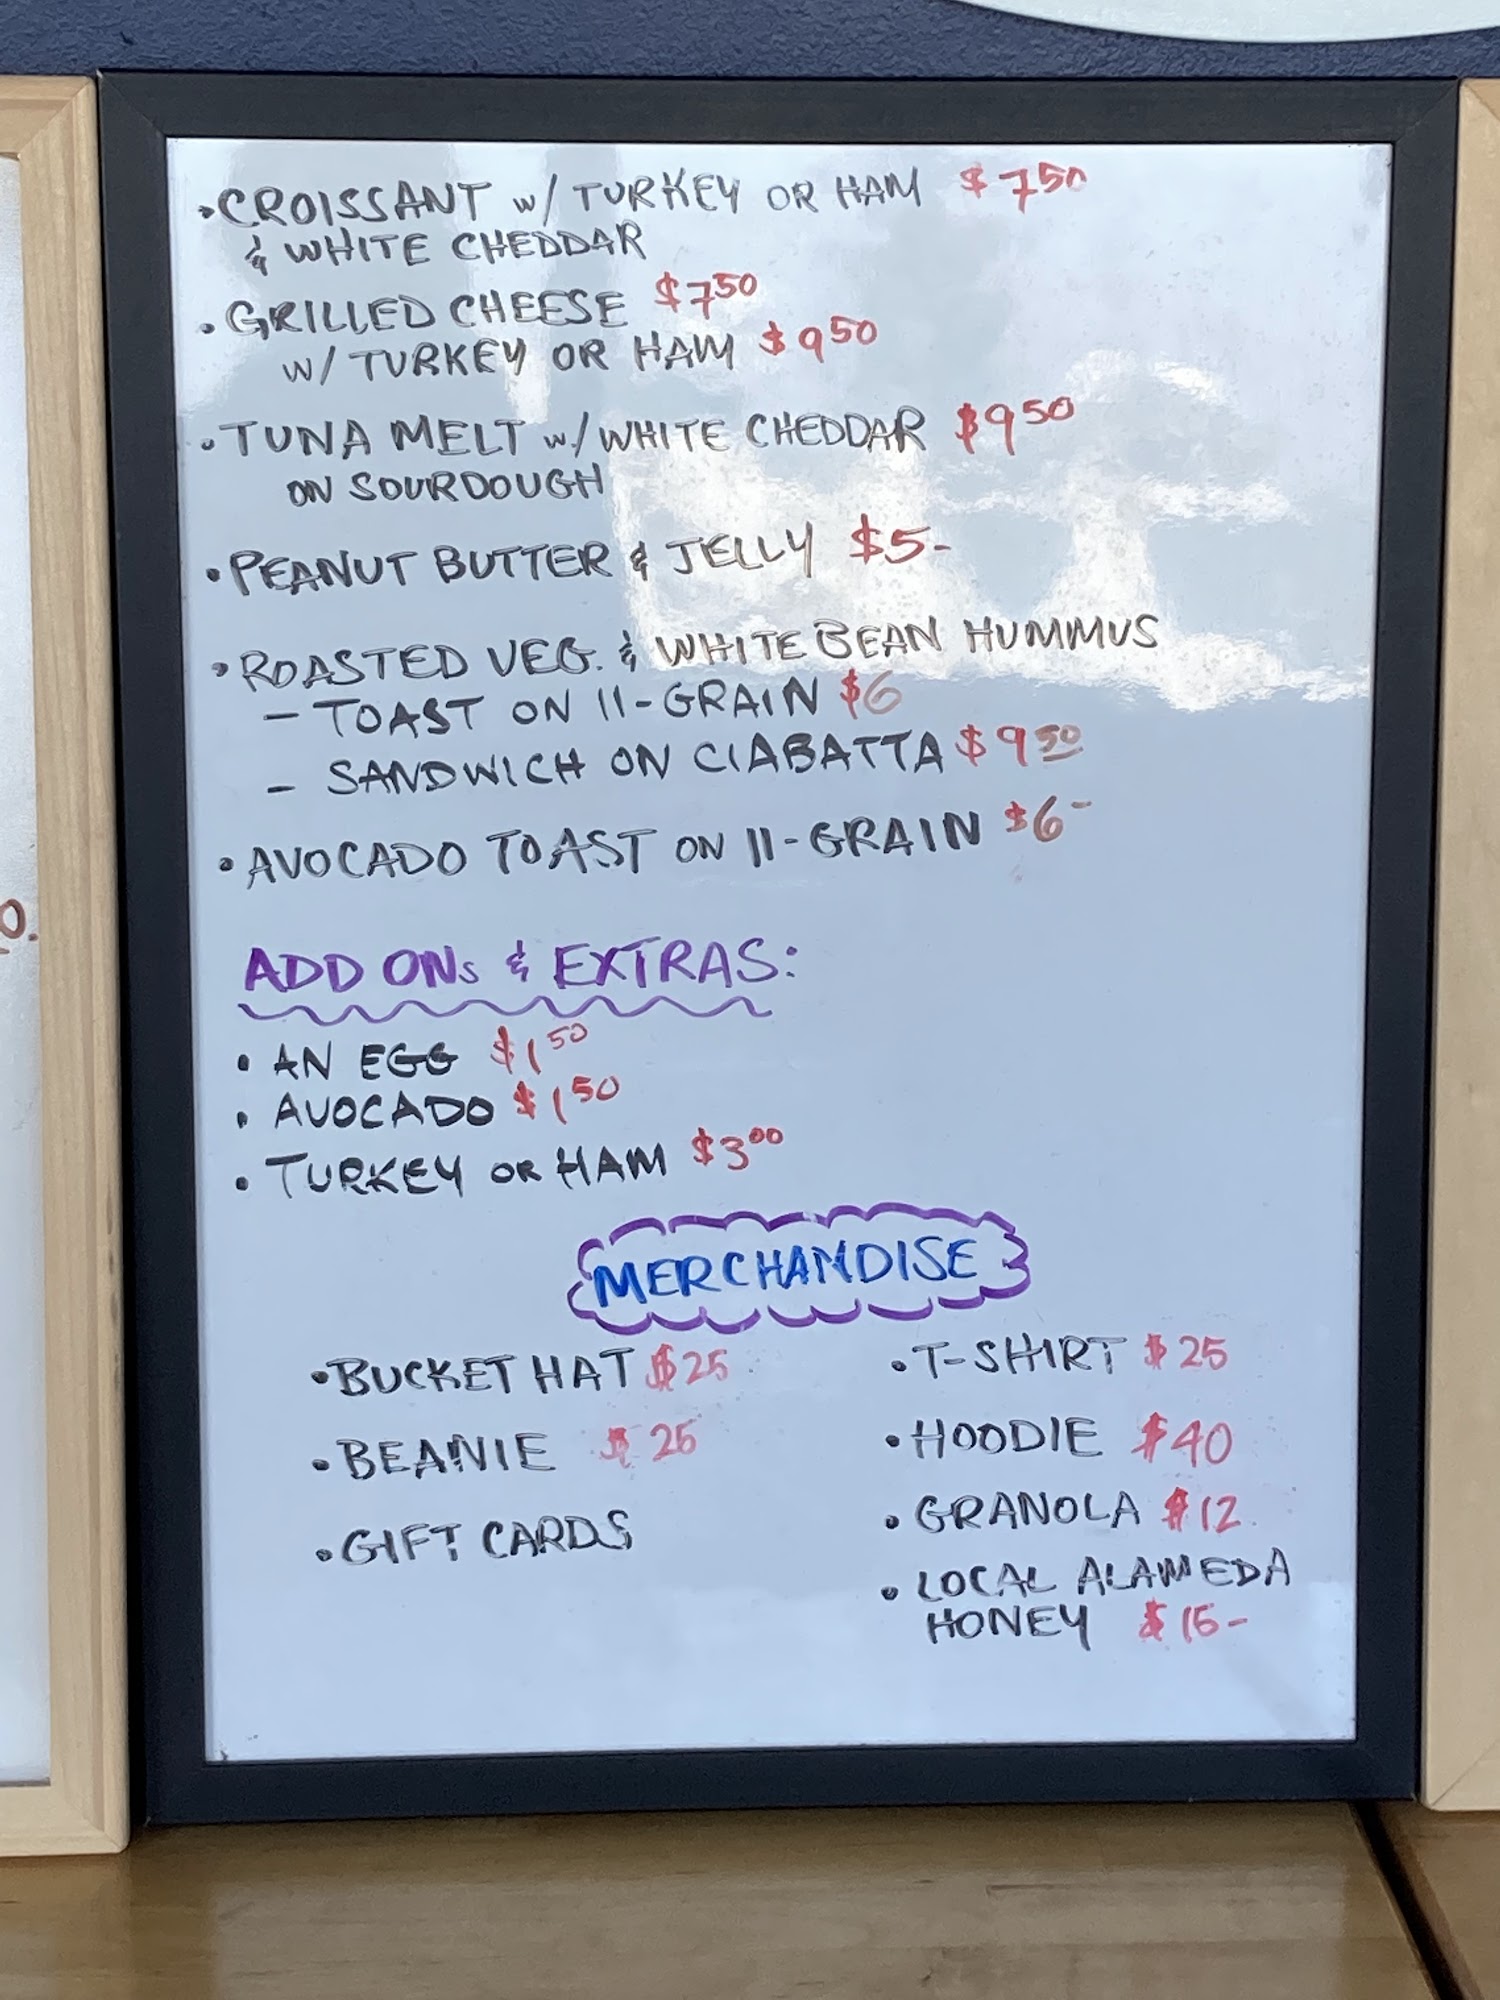 •CROISSANT w/ TURKEY OR HAM $7.50
& WHITE CHEDDAR
•GRILLED CHEESE $7.50
w/ TURKEY OR HAM $9.50
•TUNA MELT w/ WHITE CHEDDAR $9.50
ON SOURDOUGH
•PEANUT BUTTER & JELLY $5-
•ROASTED VEG. & WHITE BEAN HUMMUS
- TOAST ON 11-GRAIN $6
- SANDWICH ON CIABATTA $9.50
•AVOCADO TOAST ON 11-GRAIN $6-
ADD ONs & EXTRAS:
• AN EGG $1.50
• AVOCADO $1.50
• TURKEY OR HAM $3.00
MERCHANDISE
•BUCKET HAT $25
•BEANIE $25
•GIFT CARDS
•T-SHIRT $25
•HOODIE $40
•GRANOLA $12
• LOCAL ALAMEDA
HONEY $15-